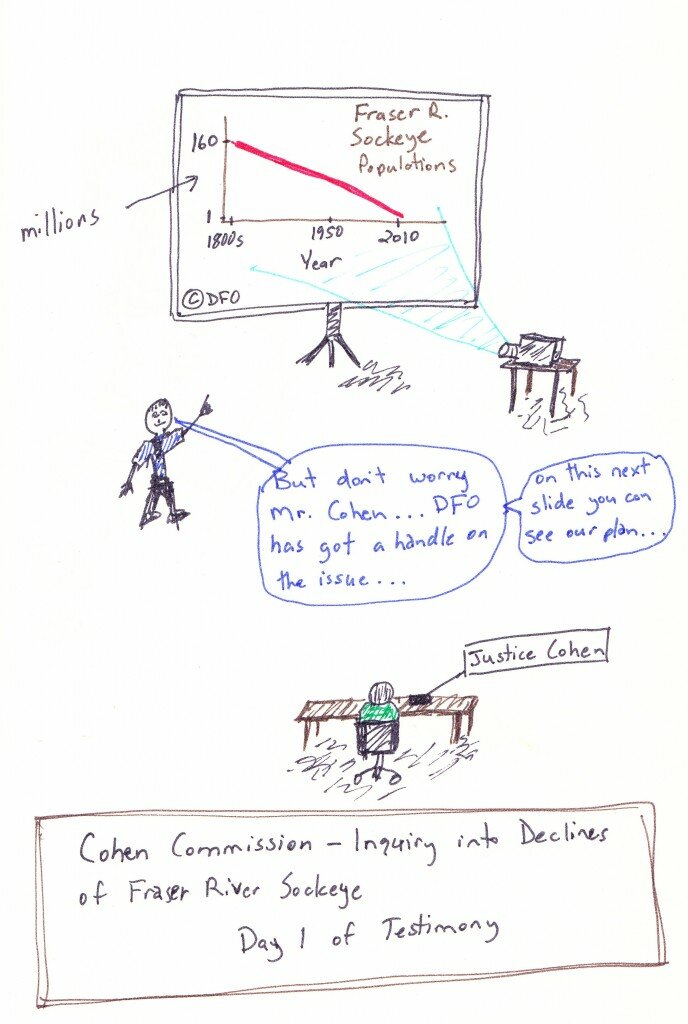 Fraser R.
Sockeye
Populations
160
millions
1
1800s 1950 2010
Year
© DFO
But don't worry
Mr. Cohen... DFO
has got a handle on
the issue...
on this next
slide you can
see our plan...
Justice Cohen
Cohen Commission - Inquiry into Declines
of Fraser River Sockeye
Day 1 of Testimony